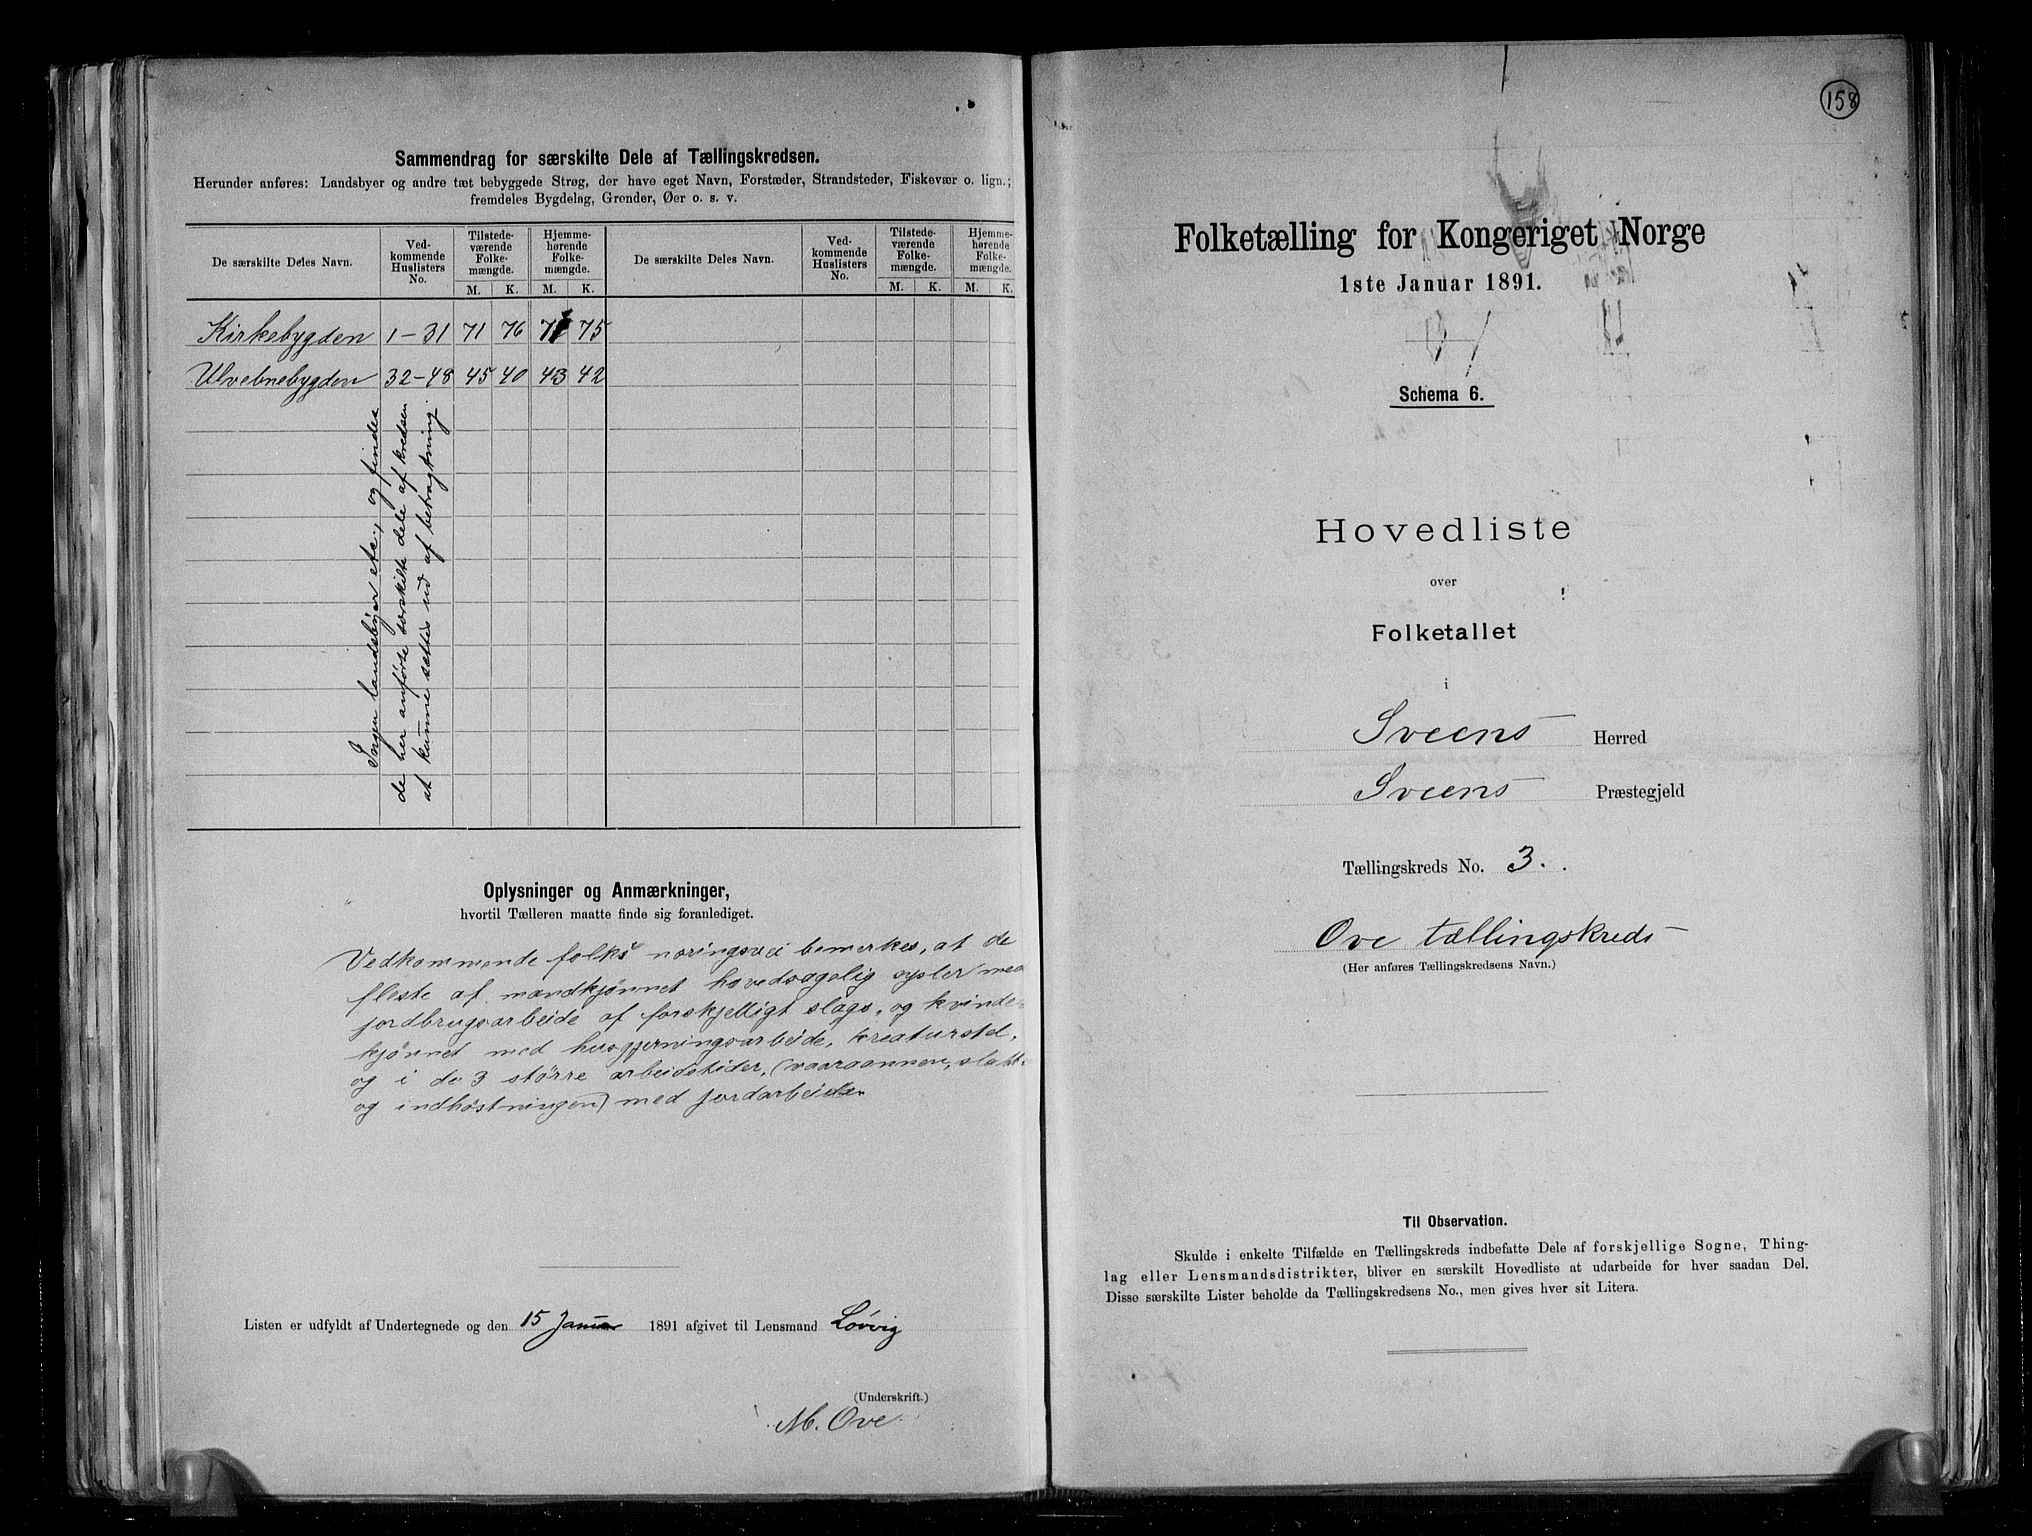 Sammendrag for særskilte Dele af Tællingskredsen.
Herunder anføres: Landsbyer og andre tæt bebyggede Strøg, der have eget Navn, Forstæder, Strandsteder, Fiskevær o. lign.;
fremdeles Bygdelag, Grender, Øer o. s. v.
De særskilte Deles Navn. Ved-kommende Huslisters No. Tilstede-værende Folke-mængde. Hjemme-hørende Folke-mængde. De særskilte Deles Navn. Ved-kommende Huslisters No. Tilstede-værende Folke-mængde. Hjemme-hørende Folke-mængde.
M. K. M. K. M. K. M. K.
Kirkebygden 1-31 71 76 71 75
Ulvebnebygden 32-48 45 40 43 42
Ingen landsbyer etc., og findes
de her anførte særskilte dele af kredsen
at kunne sættes ud af betragtning.
Oplysninger og Anmærkninger,
hvortil Tælleren maatte finde sig foranlediget.
Vedkommende folks næringsvei bemerkes, at de
fleste af mandkjønnet hovedsagelig sysler med
jordbrugsarbeide af forskjelligt slags, og kvinde-
kjønnet med husgjerningsarbeide, kreaturstel,
og i de 3 større arbeidstider, (vaaraannen, slaat-
og indhøstningen) med jordarbeide
Listen er udfyldt af Undertegnede og den 15 Januar 1891 afgivet til Lensmand Løvvig
(Underskrift.)
M. Ove.
158
Folketælling for Kongeriget Norge
1ste Januar 1891.
Schema 6.
Hovedliste
over
Folketallet
i
Sveens Herred
Sveens Præstegjeld
Tællingskreds No. 3.
Ove tællingskreds
(Her anføres Tællingskredsens Navn.)
Til Observation.
Skulde i enkelte Tilfælde en Tællingskreds indbefatte Dele af forskjellige Sogne, Thing-
lag eller Lensmandsdistrikter, bliver en særskilt Hovedliste at udarbeide for hver saadan Del.
Disse særskilte Lister beholde da Tællingskredsens No., men gives hver sit Litera.